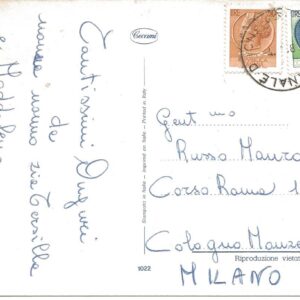 Cecami
Tantissimi Auguri
da
nonna nonno zia Tersilla
e Maddalena
Stampato in Italia - Imprimé en Italie - Printed in Italy
1022
Gent mo
Russo Mauro
Corso Roma 1
Cologno Monze
MILANO
Riproduzione vietat